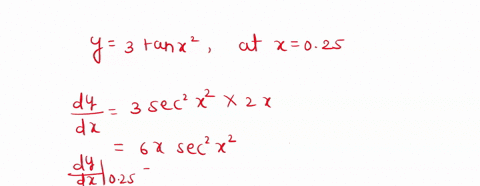 y = 3 tan x², at x = 0.25
dy/dx = 3 sec² x² × 2x
= 6x sec² x²
dy/dx|0.25 =